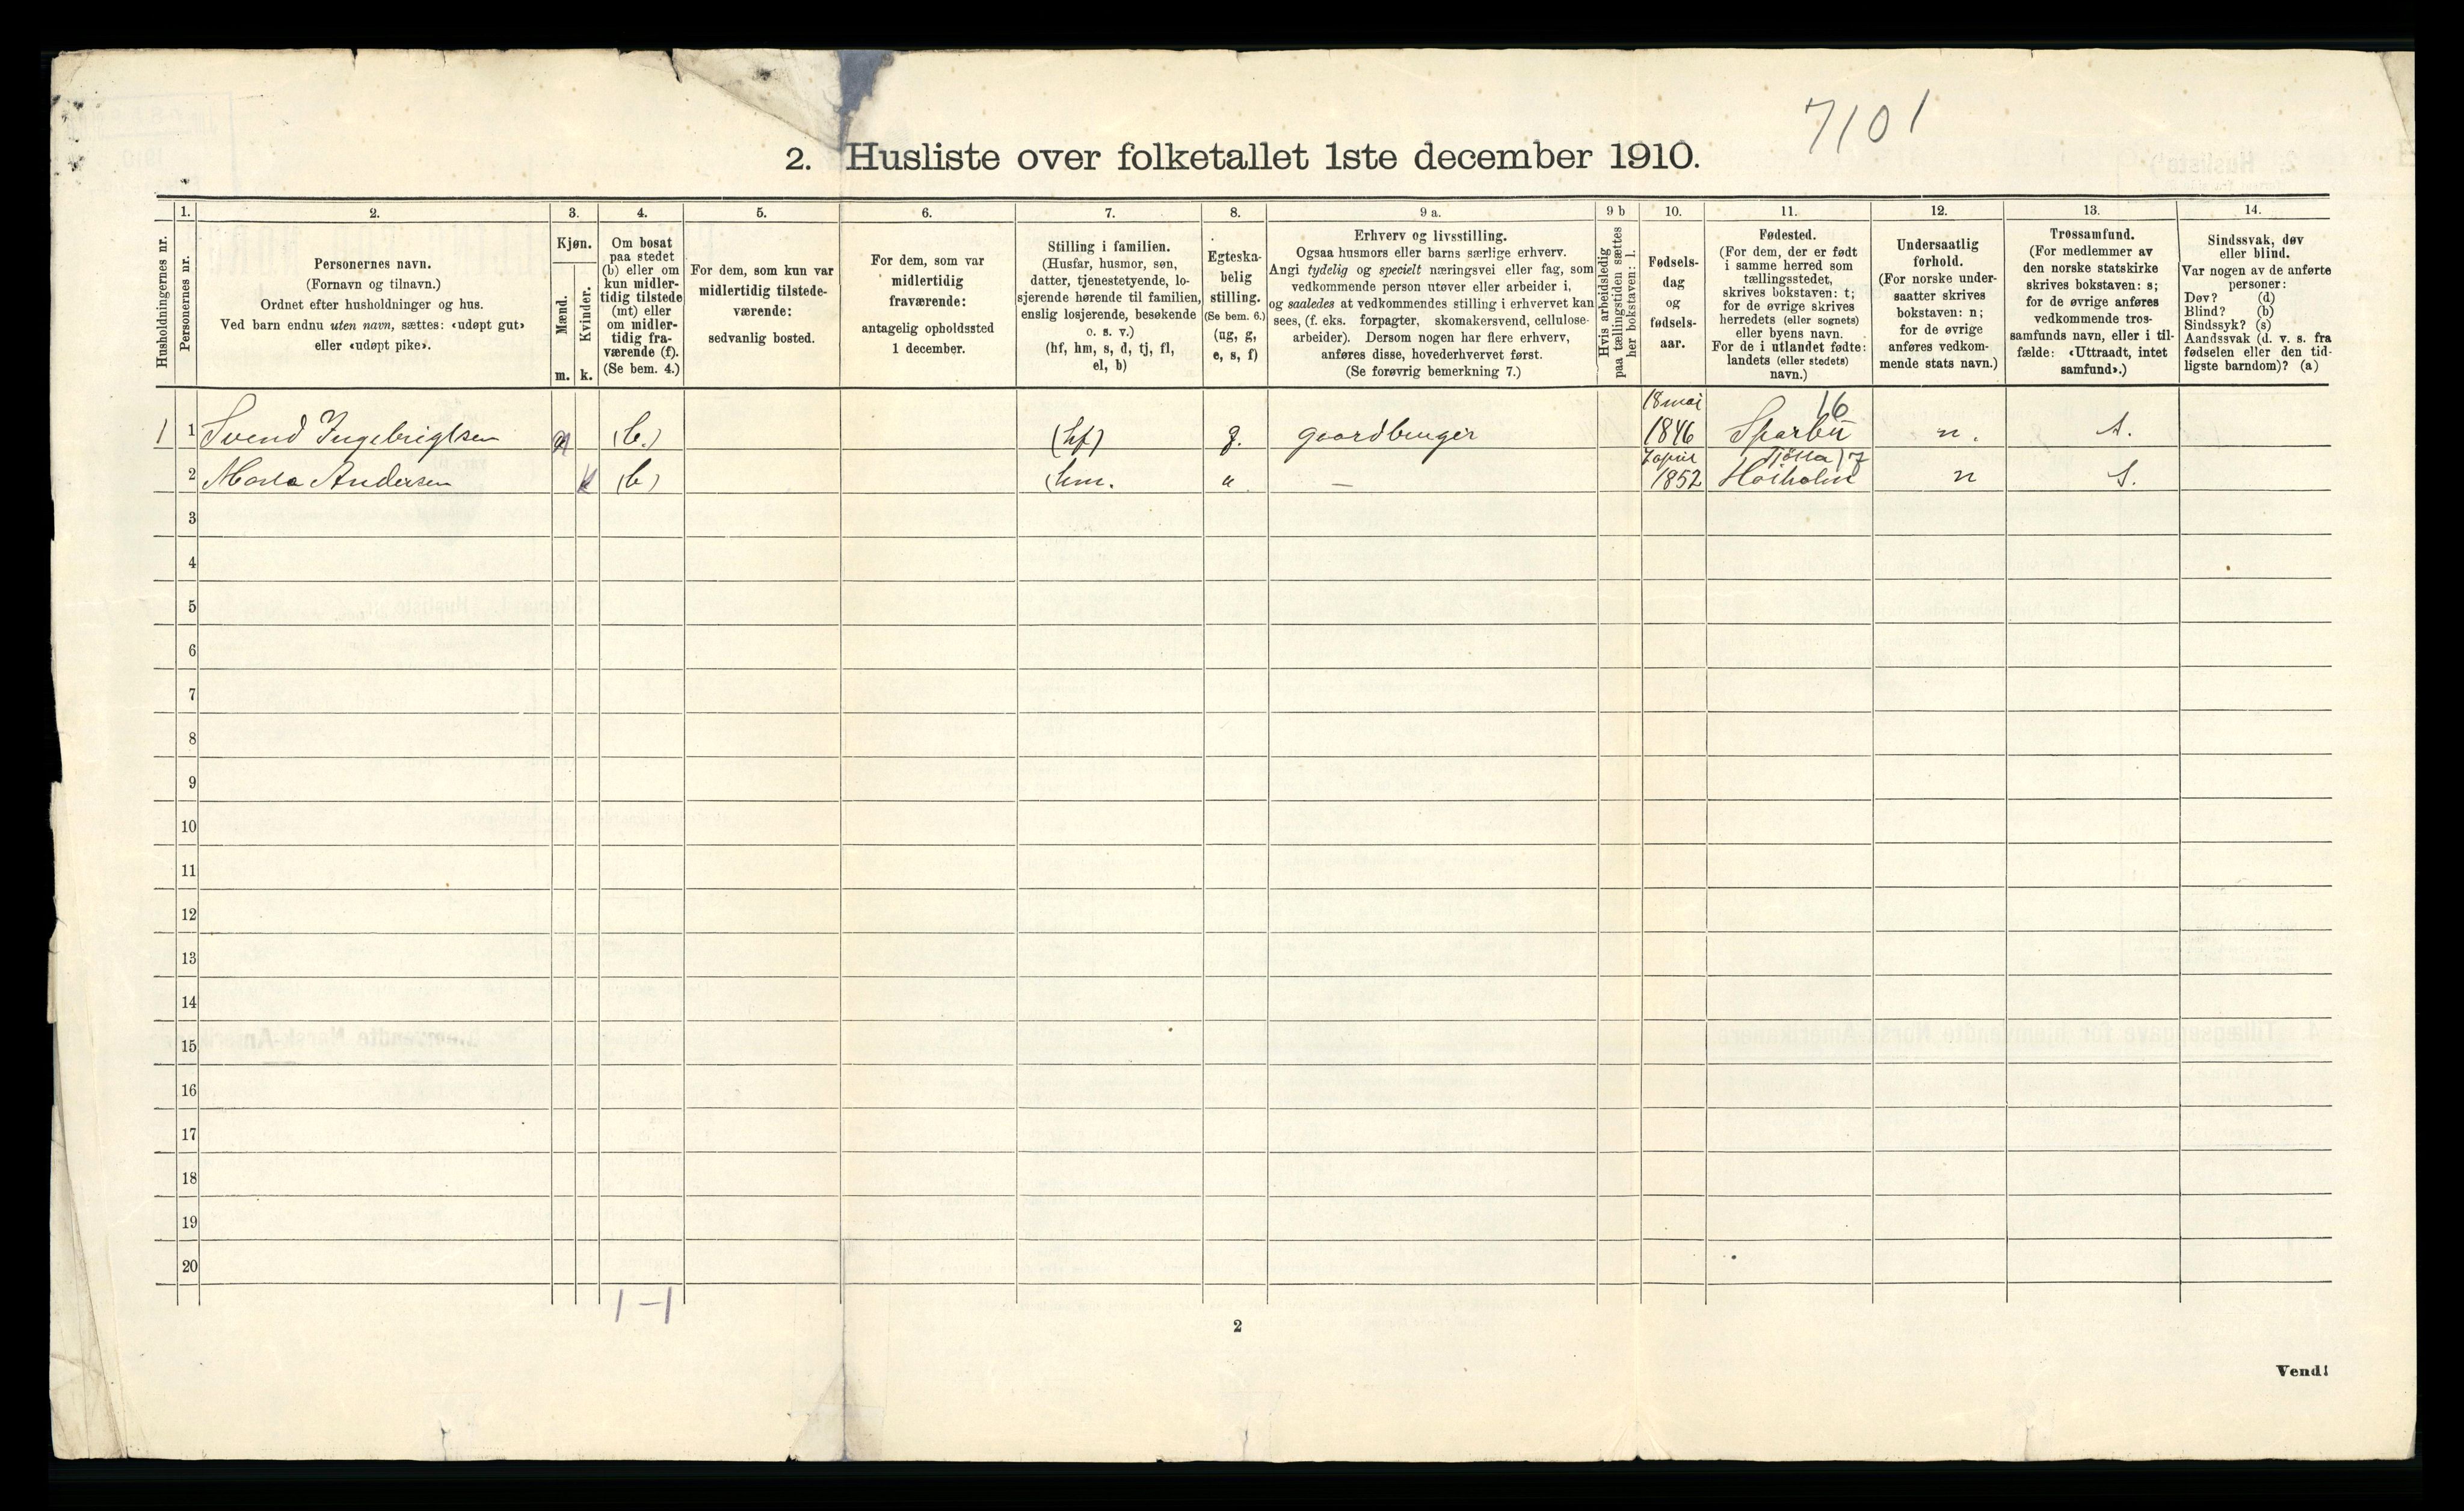 7101
2. Husliste over folketallet 1ste december 1910.
Husholdningernes nr.
1.
Personernes nr.
2.
Personernes navn.
(Fornavn og tilnavn.)
Ordnet efter husholdninger og hus.
Ved barn endnu uten navn, sættes: «udøpt gut»
eller «udøpt pike».
3.
Kjøn.
Mænd.
Kvinder.
m. k.
4.
Om bosat
paa stedet
(b) eller om
kun midler-
tidig tilstede
(mt) eller
om midler-
tidig fra-
værende (f).
(Se bem. 4.)
5.
For dem, som kun var
midlertidig tilstede-
værende:
sedvanlig bosted.
6.
For dem, som var
midlertidig
fraværende:
antagelig opholdssted
1 december.
7.
Stilling i familien.
(Husfar, husmor, søn,
datter, tjenestetyende, lo-
sjerende hørende til familien,
enslig losjerende, besøkende
o. s. v.)
(hf, hm, s, d, tj, fl,
el, b)
8.
Egteska-
belig
stilling.
(Se bem. 6.)
(ug, g,
e, s, f)
9 a.
Erhverv og livsstilling.
Ogsaa husmors eller barns særlige erhverv.
Angi tydelig og specielt næringsvei eller fag, som
vedkommende person utøver eller arbeider i,
og saaledes at vedkommendes stilling i erhvervet kan
sees, (f. eks. forpagter, skomakersvend, cellulose-
arbeider). Dersom nogen har flere erhverv,
anføres disse, hovederhvervet først.
(Se forøvrig bemerkning 7.)
9 b
Hvis arbeidsledig
paa tællingstiden sættes
her bokstaven: l.
10.
Fødsels-
dag
og
fødsels-
aar.
11.
Fødested.
(For dem, der er født
i samme herred som
tællingsstedet,
skrives bokstaven: t;
for de øvrige skrives
herredets (eller sognets)
eller byens navn.
For de i utlandet fødte:
landets (eller stedets)
navn.)
12.
Undersaatlig
forhold.
(For norske under-
saatter skrives
bokstaven: n;
for de øvrige
anføres vedkom-
mende stats navn.)
13.
Trossamfund.
(For medlemmer av
den norske statskirke
skrives bokstaven: s;
for de øvrige anføres
vedkommende tros-
samfunds navn, eller i til-
fælde: «Uttraadt, intet
samfund».)
14.
Sindssvak, døv
eller blind.
Var nogen av de anførte
personer:
Døv? (d)
Blind? (b)
Sindssyk? (s)
Aandssvak (d. v. s. fra
fødselen eller den tid-
ligste barndom)? (a)
18 mai 16
1 1 Svend Ingebrigtsen m (b.) (hf) g. gaardbruger 1846 Sparbu n. s.
7 april Tjötta 17
2 Andersen k (b) (hm. 1852 n s.
3
4
5
6
7
8
9
10
11
12
13
14
15
16
17
18
19
20
1–1
2
Vend!